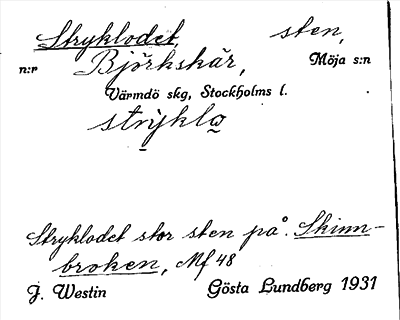 Stryklodet, sten,
n:r Björkskär, Möja s:n
Värmdö skg, Stockholms l.
strykla
Stryklodet stor sten på. Skinn-
broken, Mf 48
J. Westin Gösta Lundberg 1931